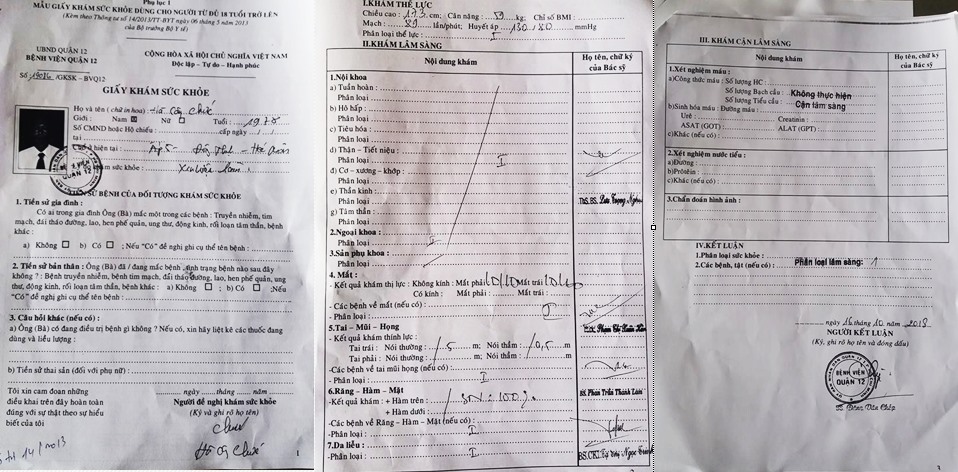 Phụ lục 1
MẪU GIẤY KHÁM SỨC KHỎE DÙNG CHO NGƯỜI TỪ ĐỦ 18 TUỔI TRỞ LÊN
(Kèm theo Thông tư số 14/2013/TT-BYT ngày 06 tháng 5 năm 2013
của Bộ trưởng Bộ Y tế)
UBND QUẬN 12
BỆNH VIỆN QUẬN 12
CỘNG HÒA XÃ HỘI CHỦ NGHĨA VIỆT NAM
Độc lập - Tự do - Hạnh phúc
Số /GKSK - BVQ12
GIẤY KHÁM SỨC KHỎE
Họ và tên (chữ in hoa) :
Giới : Nam Nữ Tuổi :
Số CMND hoặc Hộ chiếu : cấp ngày / /
tại
hiện tại : Ấp 5
khám sức khỏe :
BỆNH VIỆN QUẬN 12
SỬ BỆNH CỦA ĐỐI TƯỢNG KHÁM SỨC KHỎE
1. Tiền sử gia đình :
Có ai trong gia đình Ông (Bà) mắc một trong các bệnh : Truyền nhiễm, tim
mạch, đái tháo đường, lao, hen phế quản, ung thư, động kinh, rối loạn tâm thần, bệnh
khác :
a) Không ☐ b) Có ☐ ; Nếu “Có” đề nghị ghi cụ thể tên bệnh :
2. Tiền sử bản thân : Ông (Bà) đã / đang mắc bệnh, tình trạng bệnh nào sau đây
không ? : Bệnh truyền nhiễm, bệnh tim mạch, đái tháo đường, lao, hen phế quản, ung
thư, động kinh, rối loạn tâm thần, bệnh khác : a) Không ☐ ; b) Có ☐ ;Nếu
“Có” đề nghị ghi cụ thể tên bệnh :
3. Câu hỏi khác (nếu có) :
a) Ông (Bà) có đang điều trị bệnh gì không ? Nếu có, xin hãy liệt kê các thuốc đang
dùng và liều lượng :
b) Tiền sử thai sản (đối với phụ nữ) :
Tôi xin cam đoan những
điều khai trên đây hoàn toàn
đúng với sự thật theo sự hiểu
biết của tôi
ngày tháng năm
Người đề nghị khám sức khỏe
(Ký và ghi rõ họ tên)
1
I.KHÁM THỂ LỰC
Chiều cao : 173 cm; Cân nặng : 59 kg; Chỉ số BMI :
Mạch : 89 lần/phút; Huyết áp 130/80 mmHg
Phân loại thể lực : I
II.KHÁM LÂM SÀNG
Nội dung khám
Họ tên, chữ ký
của Bác sỹ
1.Nội khoa
a) Tuần hoàn :
Phân loại
b) Hô hấp :
Phân loại
c) Tiêu hóa :
Phân loại
d) Thận - Tiết niệu : I
Phân loại
đ) Cơ - xương - khớp :
Phân loại
e) Thần kinh :
Phân loại
g) Tâm thần :
Phân loại
2.Ngoại khoa :
Phân loại
3.Sản phụ khoa :
Phân loại
4. Mắt :
- Kết quả khám thị lực : Không kính : Mắt phải 10/10 Mắt trái : 10/10
Có kính : Mắt phải : Mắt trái :
- Các bệnh về mắt (nếu có) :
- Phân loại : I
5.Tai – Mũi – Họng
- Kết quả khám thính lực :
Tai trái : Nói thường : 5 m; Nói thầm : 0,5 m
Tai phải : Nói thường : m; Nói thầm : m
-Các bệnh về tai mũi họng (nếu có) :
- Phân loại : I
6.Răng – Hàm – Mặt
-Kết quả khám : + Hàm trên : 100%
+ Hàm dưới :
-Các bệnh về Răng – Hàm – Mặt (nếu có) :
-Phân loại : I
BS. Phan Trần Thanh Lam
7.Da liễu :
-Phân loại : I
III. KHÁM CẬN LÂM SÀNG
Nội dung khám
Họ tên, chữ ký
của Bác sỹ
1.Xét nghiệm máu :
a)Công thức máu : Số lượng HC :
Số lượng Bạch cầu : Không thực hiện
Số lượng Tiểu cầu : Cận lâm sàng
b)Sinh hóa máu : Đường máu :
Urê : Creatinin :
ASAT (GOT) : ALAT (GPT) :
c)Khác (nếu có) :
2.Xét nghiệm nước tiểu :
a)Đường :
b)Prôtêin :
c)Khác (nếu có) :
3.Chẩn đoán hình ảnh :
IV.KẾT LUẬN
1.Phân loại sức khỏe : Phân loại lâm sàng: 1
2.Các bệnh, tật (nếu có) :
ngày 16 tháng 10 năm 2018
NGƯỜI KẾT LUẬN
(Ký, ghi rõ họ tên và đóng dấu)
BỆNH VIỆN
QUẬN 12